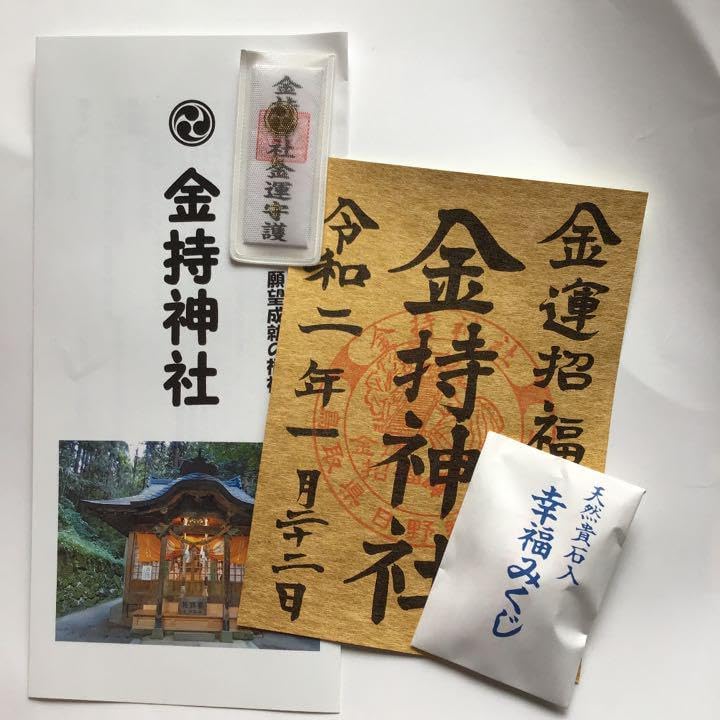 金持神社
願望成就の
金持神社金運守護
金運招福
金持神社
令和二年一月二十二日
金持神社
鳥取県日野
天然貴石入
幸福みくじ